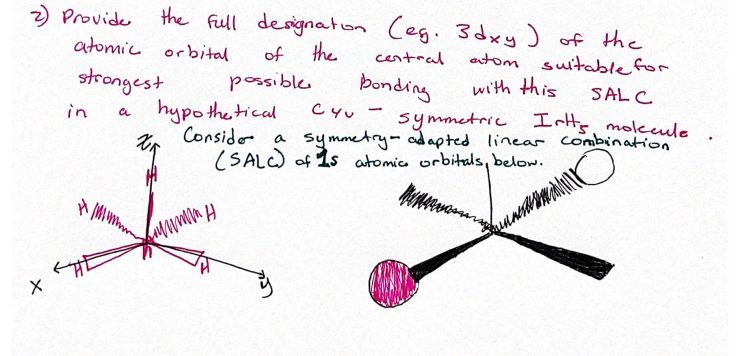 2) Provide the full designation (eg. 3dxy) of the
atomic orbital of the central atom suitable for
strongest possible bonding with this SALC
in a hypothetical C4v - symmetric IrH5 molecule.
Consider a symmetry-adapted linear combination
(SALC) of 1s atomic orbitals, below.
z
H
H
H
H
H
x
y